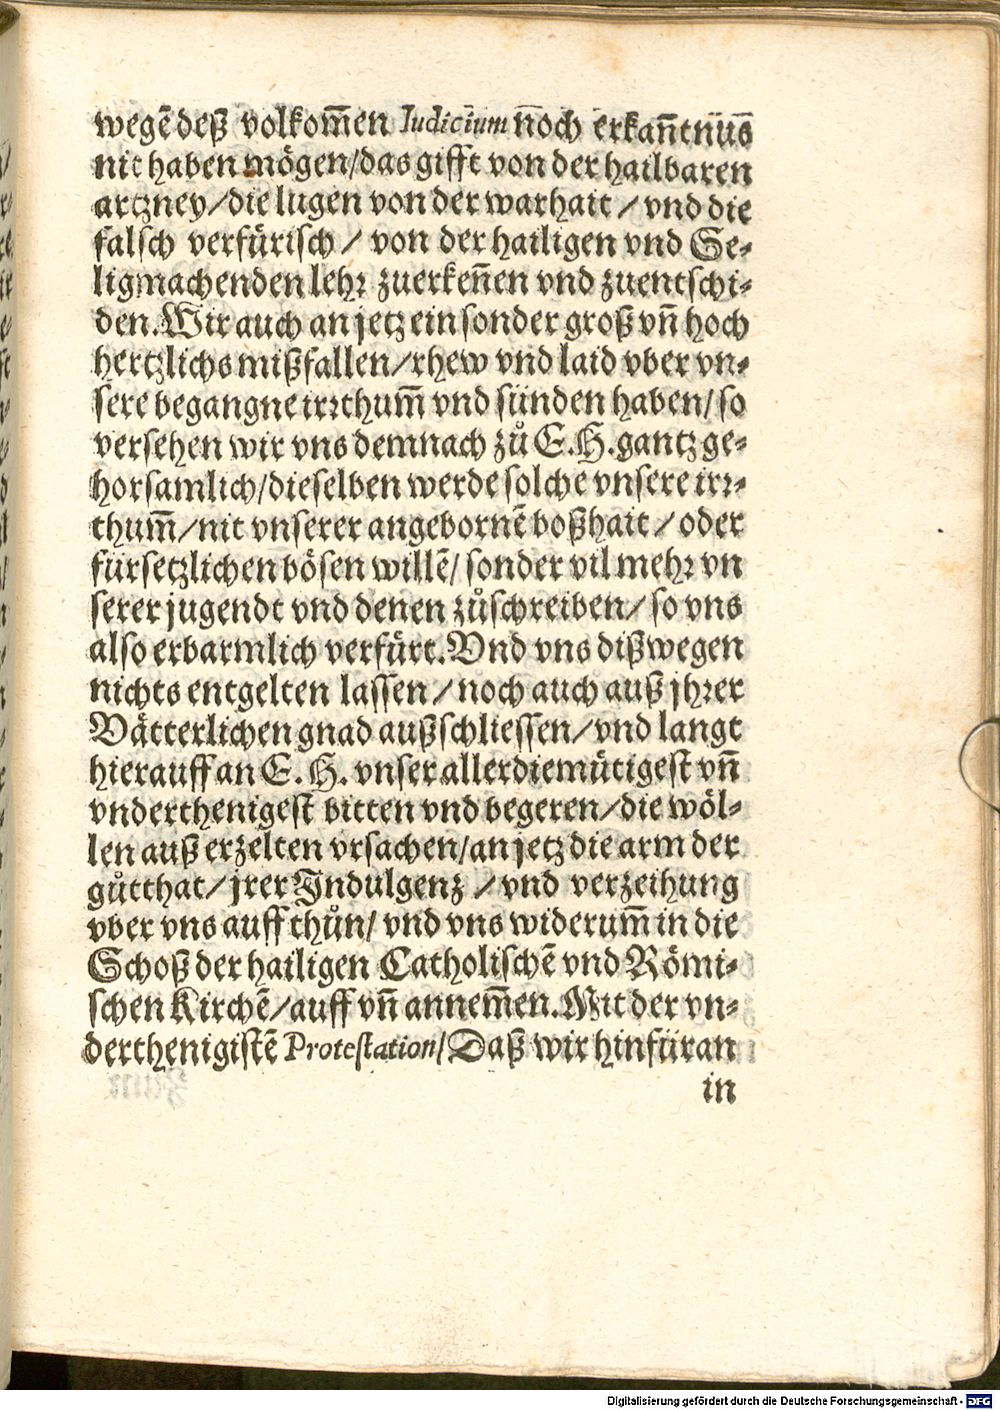 wegē deß volkom̄en Iudicium noch erkan̄tnus
nit haben mögen/das gifft von der hailbaren
artzney/die lugen von der warhait/vnd die
falsch verfürisch/ von der hailigen vnd Se⸗
ligmachenden lehr zuerken̄en vnd zuentschi⸗
den. Wir auch an jetz ein sonder groß vn̄ hoch
hertzlichs mißfallen/rhew vnd laid vber vn⸗
sere begangne irrthum̄ vnd sünden haben/so
versehen wir vns demnach zů E. H. gantz ge⸗
horsamlich/dieselben werde solche vnsere irr⸗
thum̄/nit vnserer angebornē boßhait/oder
fürsetzlichen bösen willē/sonder vil mehr vn
serer jugendt vnd denen zůschreiben/so vns
also erbarmlich verfürt. Vnd vns dißwegen
nichts entgelten lassen/noch auch auß jhrer
Vätterlichen gnad außschliessen/vnd langt
hierauff an E. H. vnser allerdiemütigest vn̄
vnderthenigest bitten vnd begeren/die wöl⸗
len auß erzelten vrsachen/an jetz die arm der
gůtthat/jrer Indulgenz/vnd verzeihung
vber vns auff thůn/vnd vns widerum̄ in die
Schoß der hailigen Catholischē vnd Römi⸗
schen Kirchē/auff vn̄ annem̄en. Mit der vn⸗
derthenigistē Protestation/Daß wir hinfüran
in
Digitalisierung gefördert durch die Deutsche Forschungsgemeinschaft - DFG